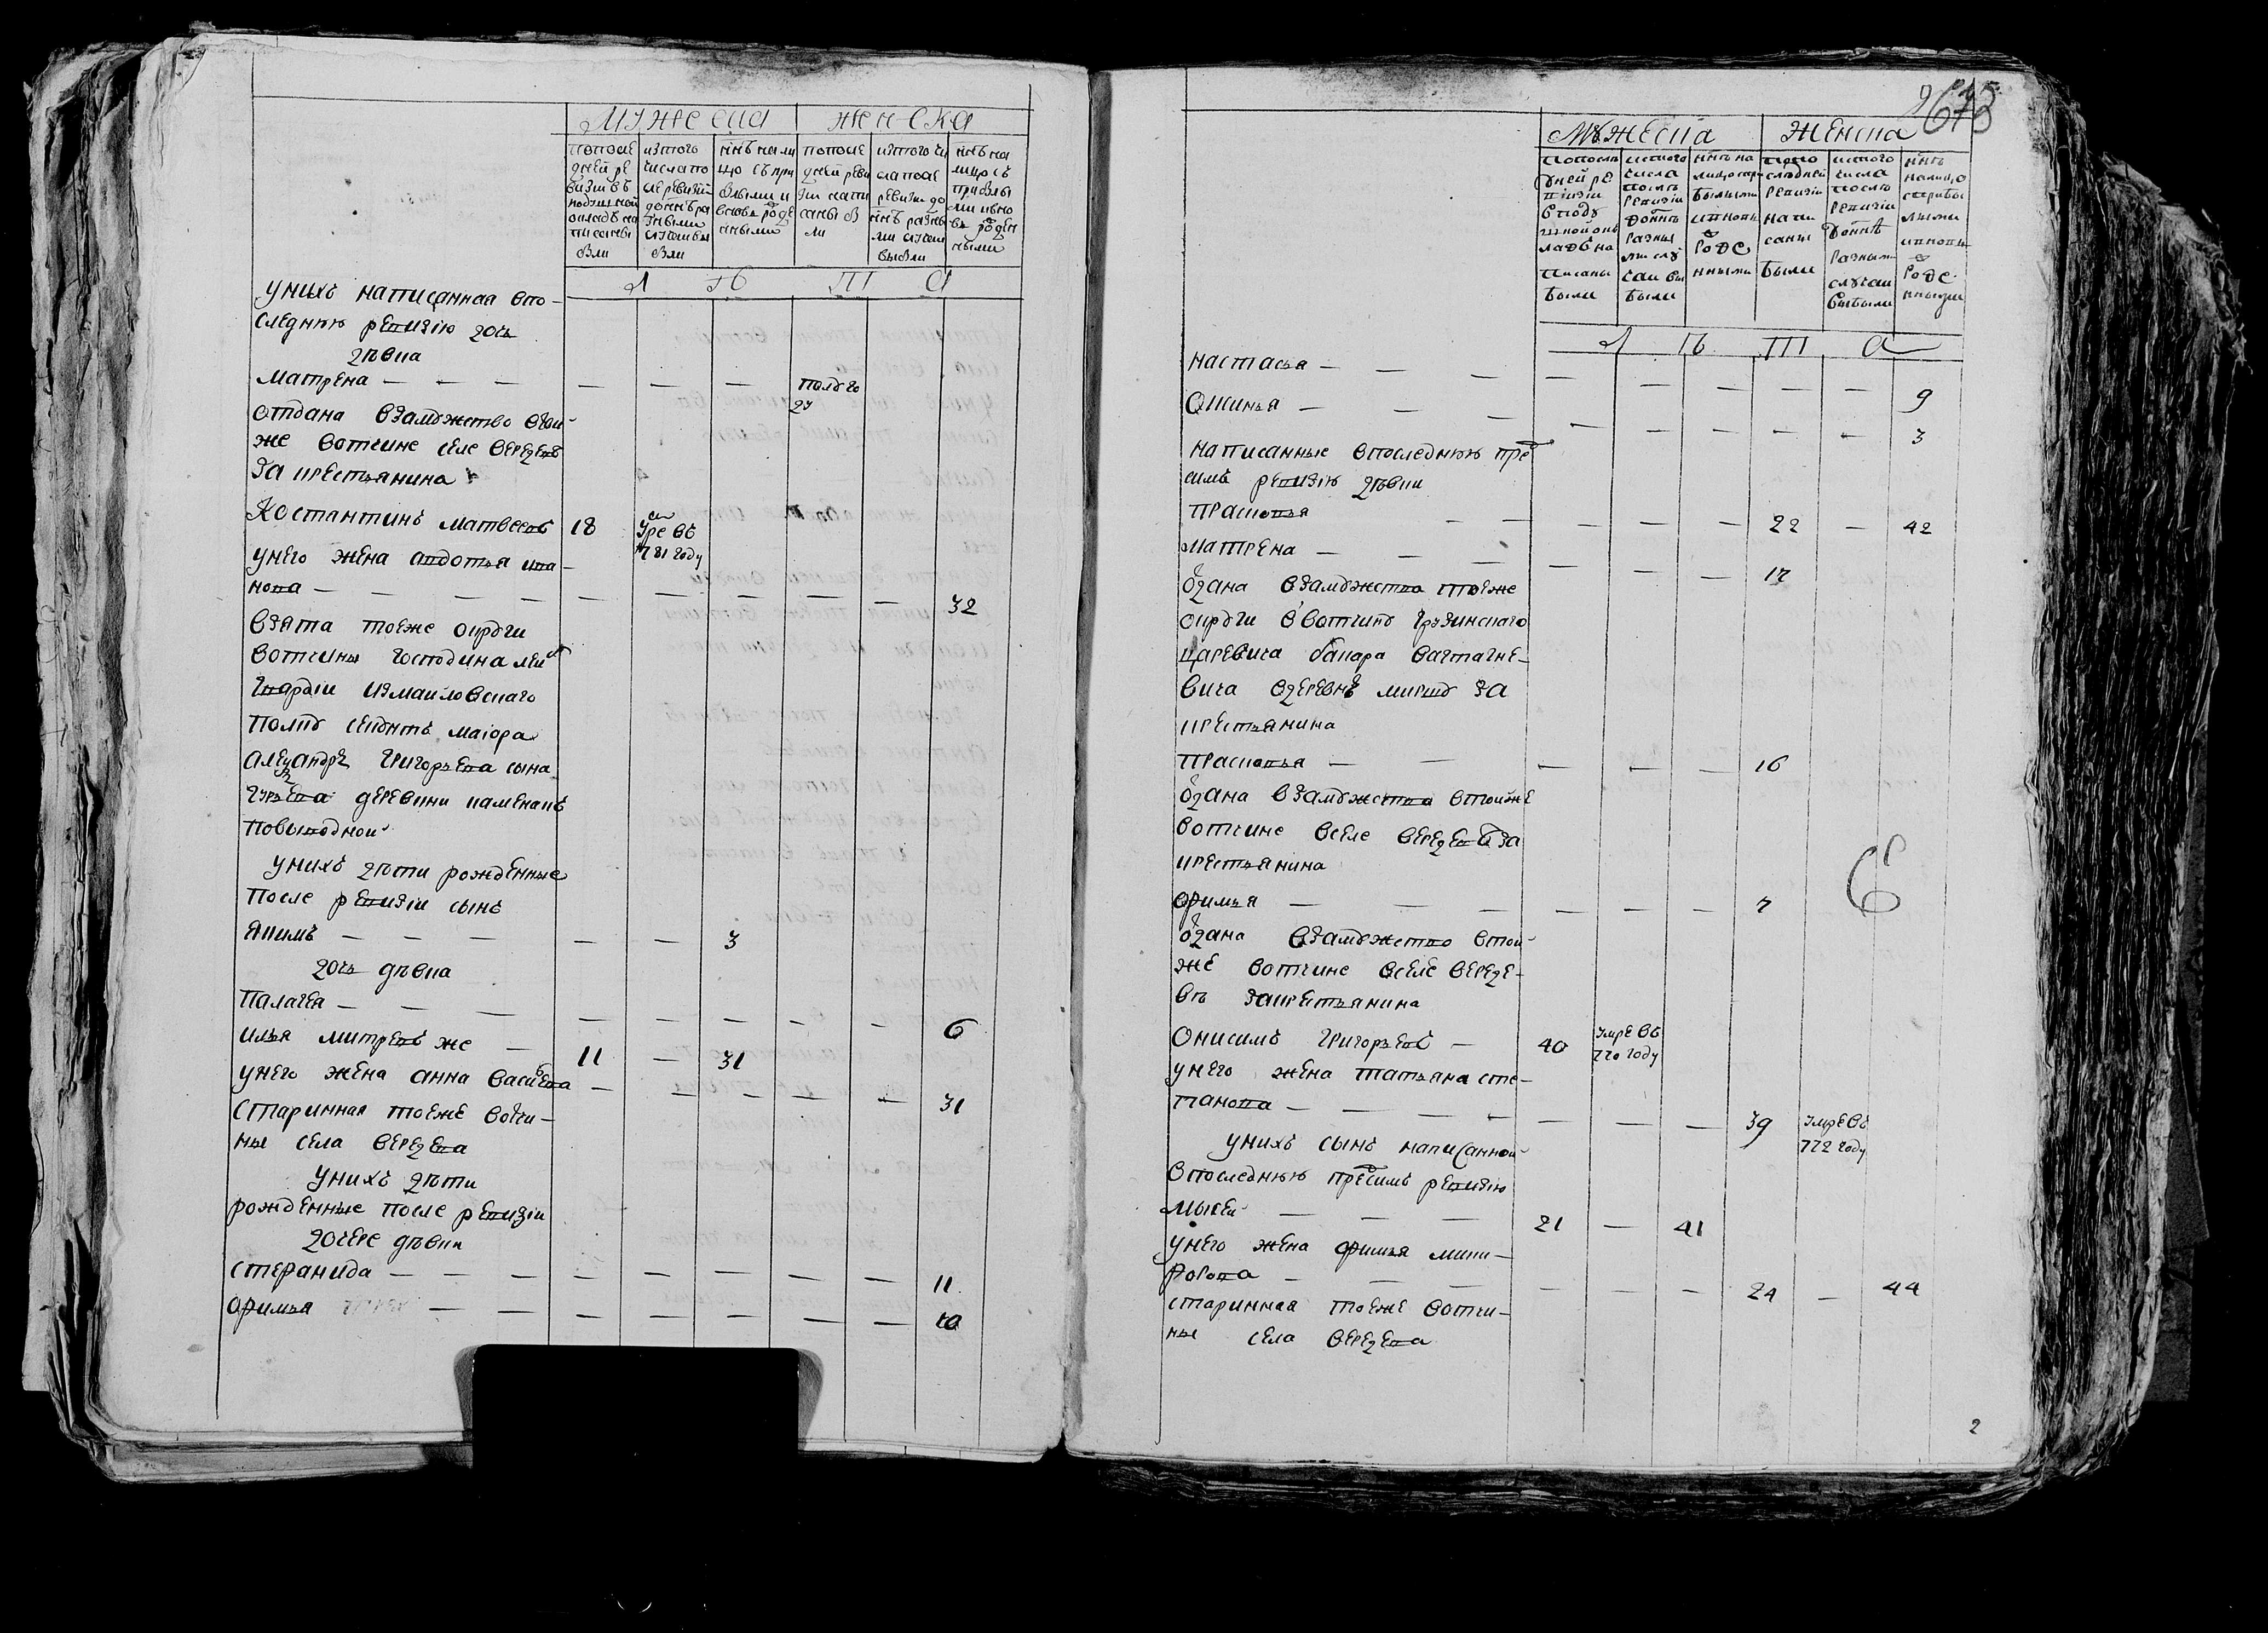 мужеска женска
попосле
дней ре
визии въ
подушной
окладъ на
писаны
были
изтого
числа по
сле ревизии
донынѣ ра
зными
случаи вы
были
нынѣ нали
цо съ при
былыми и
вновь роде
нными
попосле
дней реви
зии напи
саны б
ли
изтого чи
сла после
ревизии до
нынѣ разны
ми случаи
выбли
нынѣ на
лицо съ
прибы
ми и вно
вь рожден
ными
л т б п а
унихъ написанная впо-
следнюю ревизию дочь
дѣвка
матрена — — — — — — полуго
27
отдана взамужство втой
же вотчине селе вереде
за крестьянина
Костантинъ матвеевъ 18 умре въ
781 году
унего жена авдотья ива-
нова — — — — — — — — 32
взята тоеже округи
вотчины господина лей
гвардии измайловскаго
полку секунтъ маиора
александръ григорьева сына
гурьева деревни каменки
повыводной
унихъ дѣти рожденные
после ревизии сынъ
якимъ — — — — — 3
дочь дѣвка
палагея — — — — — — — — 6
илья митревъ же — 11 — 31
унего жена анна васильева — — — — — 31
старинная тоеже вотчи-
ны села вереде ва
унихъ дѣти
рожденные после ревизии
дочере дѣвки
степанида — — — — — — — — 11
офимья — — — — — — — 10
9
673
мужеска женска
попослѣ
дней ре
визии
в поду
шной окъ
ладъ на
писаны
были
истого
числа
послѣ
ревизии
донынѣ
разны
ми слу
чаи вы
были
нынѣ на
лицо спри
былыми
ивновь
роде
нными
попо
слѣдней
ревизии
напи
саны
были
истого
числа
послѣ
ревизии
донынѣ
разными
случаи
выбыли
нынѣ
налицо
спри бы
лыми
ивновь
роде
нными
л т б п а
настасья — — — — — — — — 9
оксинья — — — — — — — — 3
написанные впоследнюю пред
симъ ревизию дѣвки
прасковья — — — — — 22 — 42
матрена — — — — — — 17
отдана взамужство тоеже
округи ввотчину грузинскаго
царевича бакара вахтагне-
вича вдеревнѣ за
крестьянина
прасковья — — — — — 16
отдана взамужство втойже
вотчине вселе вереде за
крестьянина
офимья — — — — — — 7
отдана взамужство втой
же вотчине вселе вереде-
вѣ закрестьянина
онисимъ григорьевъ — 40 умре въ
770 году
унего жена татьяна сте-
панова — — — — — — — 39 умре въ
772 году
унихъ сынъ написанной
впоследнюю предсимъ ревизию
мосей — — — 21 — 41
унего жена офимья ники-
форова — — — — — — 24 — 44
старинная тоеже вотчи-
ны села вереде ва
2